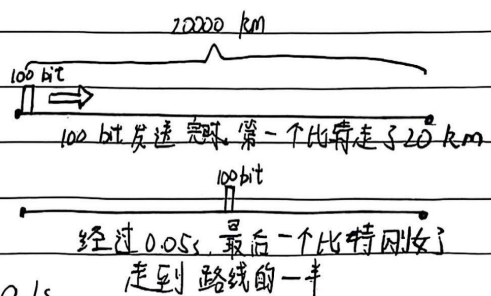 20000 km
100 bit
100 bit 发送完时,第一个比特走了20 km
100bit
经过0.05s,最后一个比特刚好
走到路线的一半